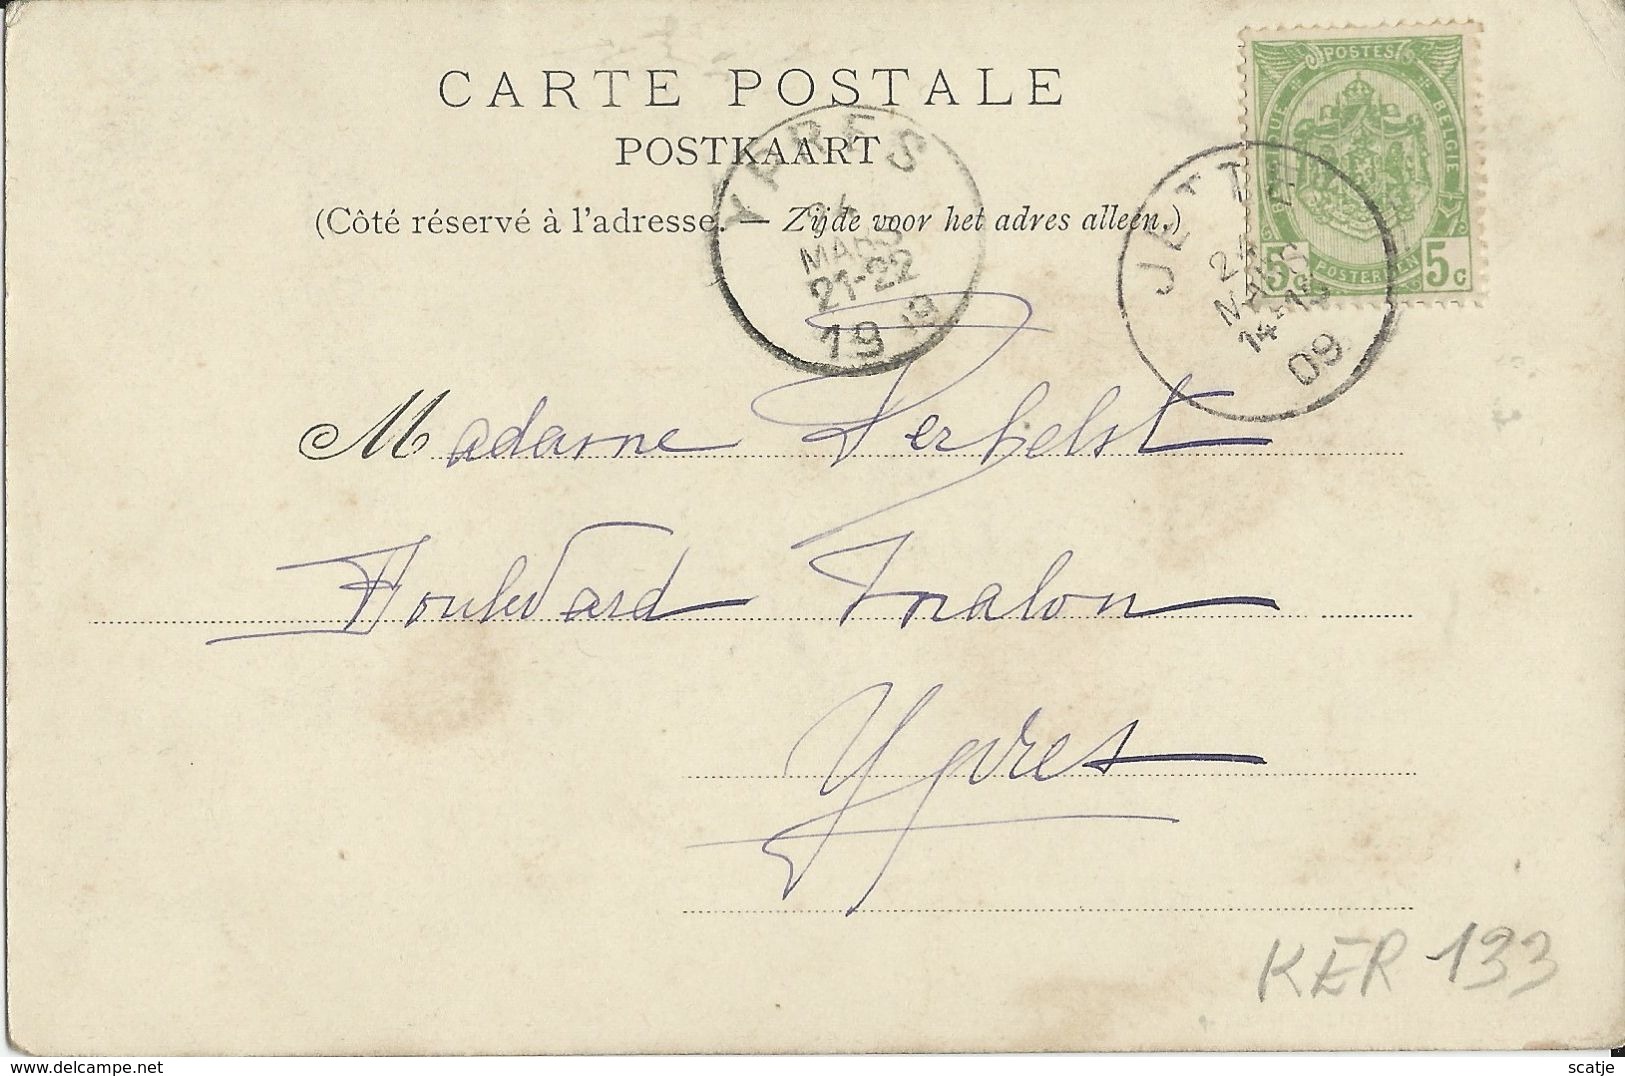 CARTE POSTALE
POSTKAART
(Côté réservé à l'adresse. — Zijde voor het adres alleen.)
POSTES
BELGIE
5c POSTERIJEN 5c
YPRES
24
MARS
21-22
19
JETTE
MARS
09
Madame
Boulevard Malou
Ypres
KER 133
delcampe.net
scatje